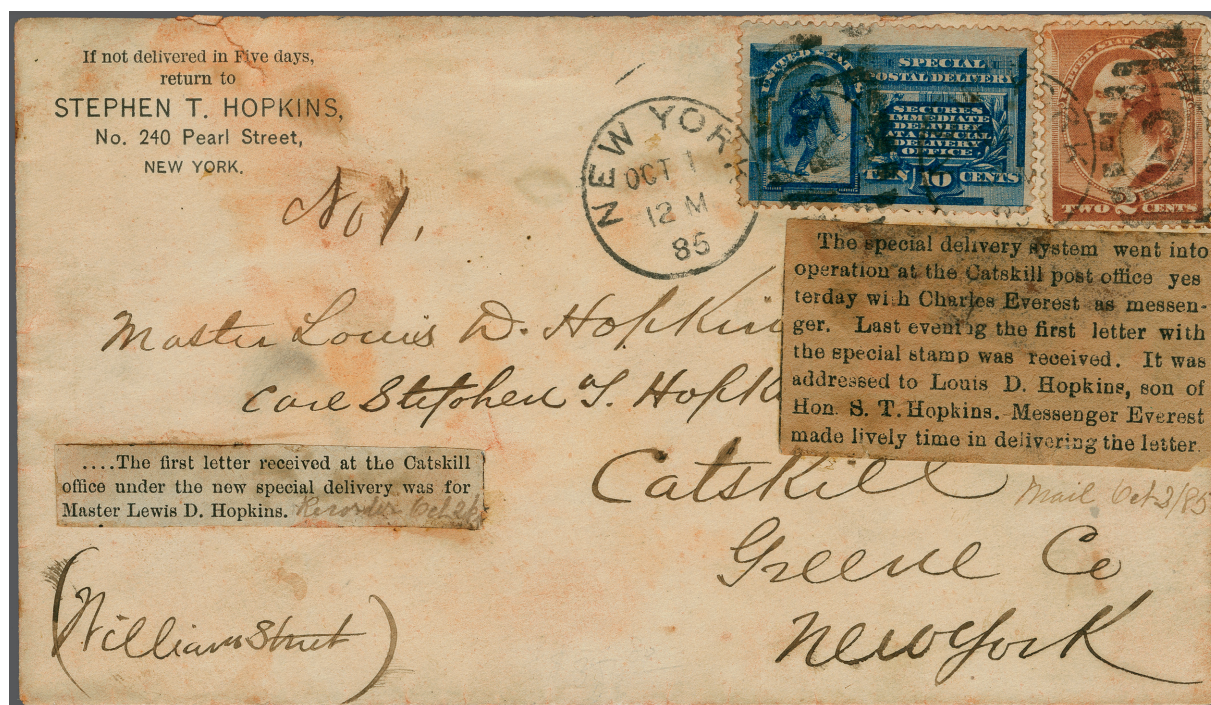 If not delivered in Five days,
return to
STEPHEN T. HOPKINS,
No. 240 Pearl Street,
NEW YORK.
No 1,
NEW YORK
OCT 1
12 M
85
UNITED STATES
SPECIAL
POSTAL DELIVERY
SECURES
IMMEDIATE
DELIVERY
AT A SPECIAL
DELIVERY
OFFICE
TEN 10 CENTS
UNITED STATES
TWO 2 CENTS
The special delivery system went into
operation at the Catskill post office yes
terday with Charles Everest as messen-
ger. Last evening the first letter with
the special stamp was received. It was
addressed to Louis D. Hopkins, son of
Hon. S. T. Hopkins. Messenger Everest
made lively time in delivering the letter.
Mail Oct 2/85
Master Louis D. Hopkin
Care Stephen T. Hopk
....The first letter received at the Catskill
office under the new special delivery was for
Master Lewis D. Hopkins.
Recorder Oct 2/85
Catskill
Greene Co
New York
(William Street)